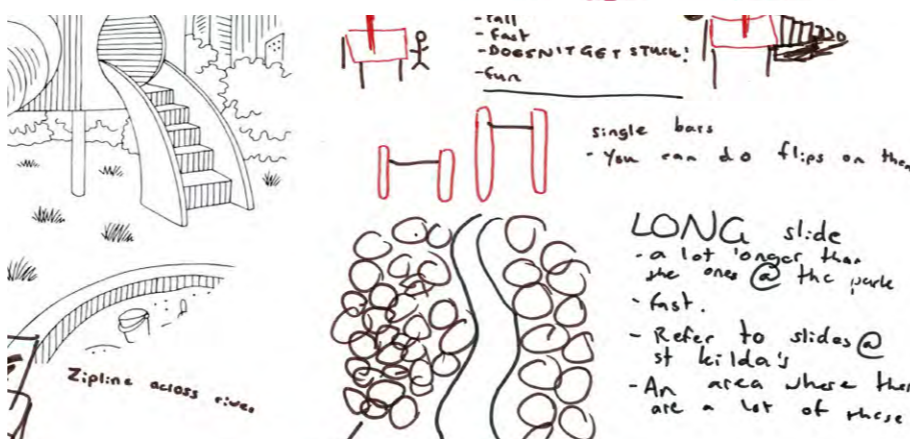 - tall
- fast
- DOESN'T GET STUCK!
- fun
single bars
- You can do flips on them
LONG slide
- a lot longer than
the ones @ the park
- fast.
- Refer to slides @
st kilda's
- An area where there
are a lot of these
Zipline across river